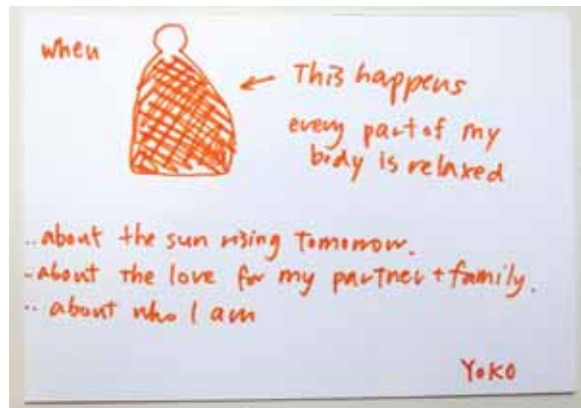 when
This happens
every part of my
body is relaxed
..about the sun rising tomorrow.
..about the love for my partner + family.
.. about who I am
Yoko